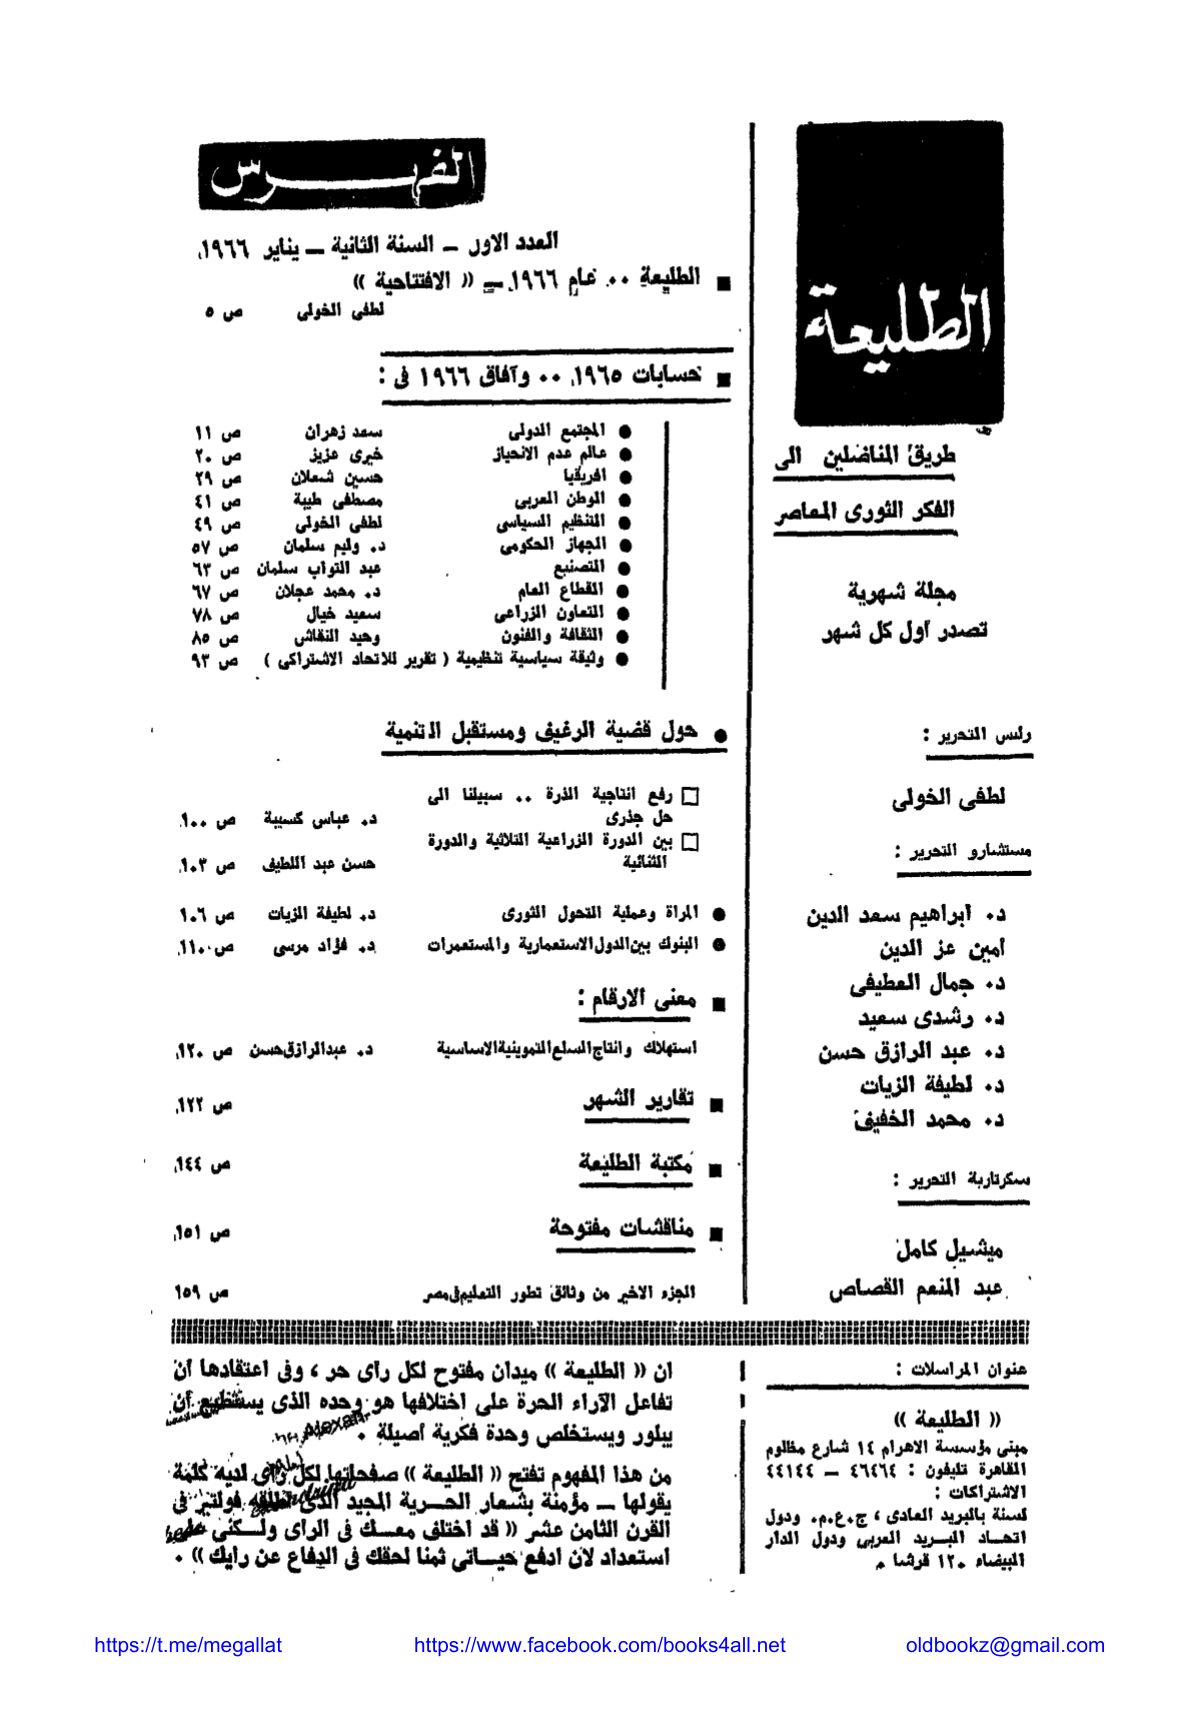 الطليعة
طريق المناضلين الى
الفكر الثورى المعاصر
مجلة شهرية
تصدر أول كل شهر
رئيس التحرير :
لطفى الخولى
مستشارو التحرير :
د. ابراهيم سعد الدين
أمين عز الدين
د. جمال العطيفى
د. رشدى سعيد
د. عبد الرازق حسن
د. لطيفة الزيات
د. محمد الخفيف
سكرتارية التحرير :
ميشيل كامل
عبد المنعم القصاص
الفهرس
العدد الاول – السنة الثانية – يناير ١٩٦٦
■ الطليعة .. عام ١٩٦٦ – « الافتتاحية »
لطفى الخولى ص ٥
■ حسابات ١٩٦٥ .. وآفاق ١٩٦٦ فى :
● المجتمع الدولى سعد زهران ص ١١
● عالم عدم الانحياز خيرى عزيز ص ٢٠
● افريقيا حسين شعلان ص ٢٩
● الوطن العربى مصطفى طيبة ص ٤١
● التنظيم السياسى لطفى الخولى ص ٤٩
● الجهاز الحكومى د. وليم سلمان ص ٥٧
● التصنيع عبد التواب سلمان ص ٦٣
● القطاع العام د. محمد عجلان ص ٦٧
● التعاون الزراعى سعيد خيال ص ٧٨
● الثقافة والفنون وحيد النقاش ص ٨٥
● وثيقة سياسية تنظيمية ( تقرير للاتحاد الاشتراكى ) ص ٩٣
● حول قضية الرغيف ومستقبل التنمية
□ رفع انتاجية الذرة .. سبيلنا الى
حل جذرى د. عباس كسيبة ص ١٠٠
□ بين الدورة الزراعية الثلاثية والدورة
الثنائية حسن عبد اللطيف ص ١٠٣
● المرأة وعملية التحول الثورى د. لطيفة الزيات ص ١٠٦
● البنوك بين الدول الاستعمارية والمستعمرات د. فؤاد مرسى ص ١١٠
■ معنى الارقام :
استهلاك وانتاج السلع التموينية الاساسية د. عبد الرازق حسن ص ١٢٠
■ تقارير الشهر ص ١٢٢
■ مكتبة الطليعة ص ١٤٤
■ مناقشات مفتوحة ص ١٥١
الجزء الاخير من وثائق تطور التعليم فى مصر ص ١٥٩
عنوان المراسلات :
« الطليعة »
مبنى مؤسسة الاهرام ١٤ شارع مظلوم
القاهرة تليفون : ٤٦٤٦٤ – ٤٤١٤٤
الاشتراكات :
لسنة بالبريد العادى ، ج.ع.م. ودول
اتحاد البريد العربى ودول الدار
البيضاء ١٢٠ قرشا .
ان « الطليعة » ميدان مفتوح لكل رأى حر ، وفى اعتقادها أن
تفاعل الآراء الحرة على اختلافها هو وحده الذى يستطيع أن
يبلور ويستخلص وحدة فكرية أصيلة .
من هذا المفهوم تفتح « الطليعة » صفحاتها لكل رأى لديه كلمة
يقولها – مؤمنة بشعار الحرية المجيد الذى أطلقه فولتير فى
القرن الثامن عشر « قد اختلف معك فى الرأى ولكنى على
استعداد لان ادفع حياتى ثمنا لحقك فى الدفاع عن رأيك » .
https://t.me/megallat
https://www.facebook.com/books4all.net
oldbookz@gmail.com